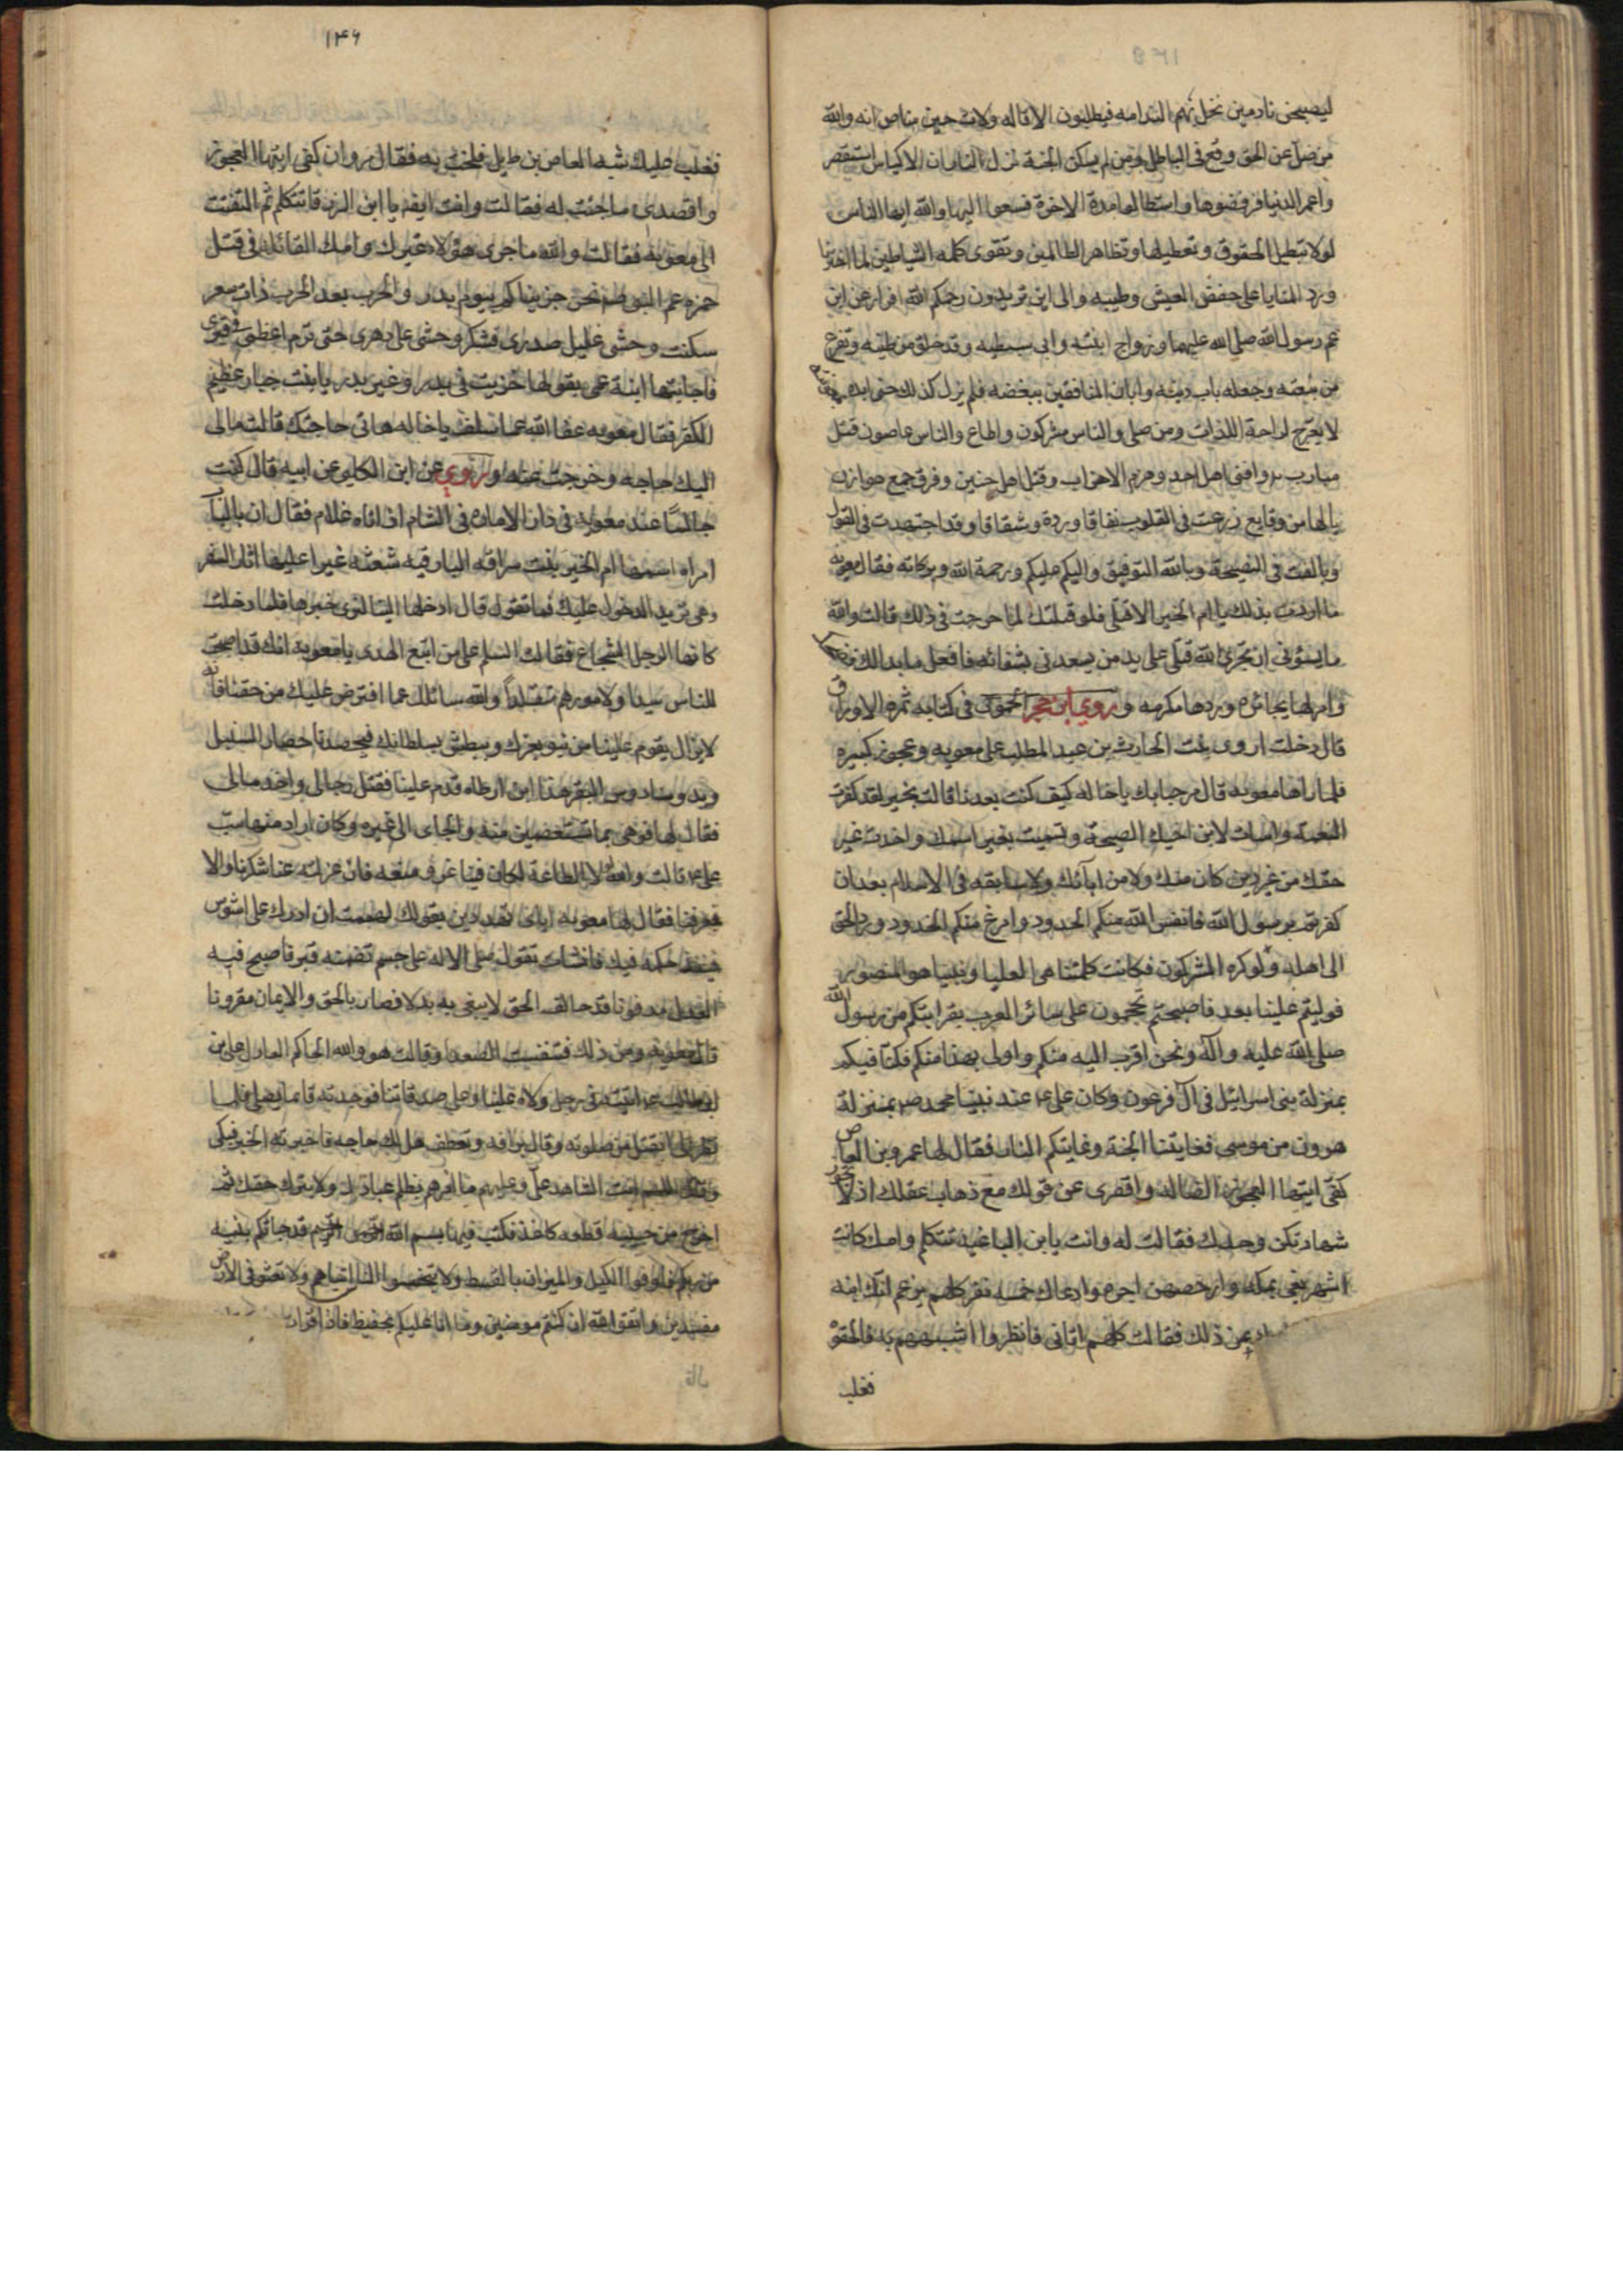 ليصبحن نادمين تحل بهم الندامه فيطلبون الاقاله ولات حين مناص انه والله
من ضل عن الحق وقع فى الباطل ومن لم يسكن الجنة نزل النار ان الاكياس استقصر
واعمر الدنيا فرفضوها واستطالوا مدة الاخرة فسعوا اليها والله ايها الناس
لولا تبطيل الحقوق وتعطيلها وتظاهر الظالمين وتقوى كلمه الشياطين لما اخترنا
ورد المنايا على خفض العيش وطيبه والى اين تريدون رحمكم الله افرار عن ابن
عم رسول الله صلى الله عليهما وزواج ابنته وابى سبطيه وقد خلق من طينه وتفرع
من نبعته وجعله باب دينه وابان المنافقين ببغضه فلم يزل كذلك حتى
لا يعرج لراحة اللذات ومن صلى والناس مشركون واطاع والناس عاصون قتل
مبارى بدر وافنى اهل احد وهزم الاحزاب وقتل اهل حنين وفرق جمع هوازن
يالها من وقايع زرعت فى القلوب نفاقا وردة وشقاقا وقد اجتهدت فى القول
وبالغت فى النصيحة وبالله التوفيق واليكم عليكم ورحمة الله وبركاته فقال معويه
ما اردت بذلك يا ام الخير الا قتلى فلو قتلتك لما حرجت فى ذلك قالت والله
ما يسؤنى ان يجرى الله قتلى على يد من يسعدنى بشقائه فافعل ما بدالك فضحك
وامر لها بجائزه وردها مكرمه وروي ابن حجر الحموى فى كتابه ثمره الاوراق
قال دخلت اروى بنت الحارث بن عبد المطلب على معويه وعجوز كبيره
فلما راها معويه قال مرحبا بك ياخاله كيف كنت بعدنا قالت بخير لقد كفرت
النعمة واسات لابن اخيك الصحبة وتسميت بغير اسمك واخذت غير
حقك من غير دين كان منك ولا من ابائك ولا سابقه فى الاسلام بعد ان
كفرتم برسول الله فانفس الله منكم الجدود وامرغ منكم الخدود ورد الحق
الى اهله ولو كره المشركون فكانت كلمتنا هى العليا ونبينا هو المنصور
فوليتم علينا بعد فاصبحتم تحجمون على سائر العرب بقرابتكم من رسول الله
صلى الله عليه وآله ونحن اقرب اليه منكم واولى بهذا منكم فكنا فيكم
بمنزلة بنى اسرائيل فى آل فرعون وكان على ع عند نبينا محمد ص بمنزلة
هرون من موسى فغايتنا الجنة وغايتكم النار فقال لها عمرو بن العاص
كفى ايتها العجوز الضاله واقصرى عن قولك مع ذهاب عقلك اذ لا تجوز
شهادتكن وحدك فقالت له وانت يابن الباغيه تتكلم وامك كانت
اشهر بغى بمكه وارخصهن اجره وادعاك خمسه نفر كلهم يزعم انك ابنه
عن ذلك فقالت كلهم اتانى فانظروا اشبههم به فالحقوه
فغلب
١٤٦
فغلب عليك شبه العاص بن وايل فلحقت به فقال مروان كفى ايتها العجوز
واقصدى ما جئت له فقالت وانت ايضا يا ابن الزرقا تتكلم ثم التفتت
الى معويه فقالت والله ماجرى هؤلاء غيرك وامك القائله فى قتل
حمزه عم النبى ص نحن جزيناكم بيوم بدر والحرب بعد الحرب ذات سعر
سكنت وحشى غليل صدرى فشكر وحشى على دهرى حتى ترم اعظمى فى قبرى
فاجابتها ابنة عمى بقولها خزيت فى بدر وغير بدر يا بنت جبار عظيم
الكفر فقال معويه عفا الله عما سلف ياخاله هاتى حاجتك قالت مالى
اليك حاجه وخرجت عنه وروي عن ابن الكلبى عن ابيه قال كنت
جالسا عند معويه فى دار الاماره فى الشام اذ اتاه غلام فقال ان بالباب
امراه اسمها ام الخير بنت سراقه البارقيه شعثه غبرا عليها اثار السفر
وهى تريد الدخول عليك فما تقول قال ادخلها الينا لنرى خبرها فلما دخلت
كانها الرجل الشجاع فقالت السلم على من اتبع الهدى يا معويه انك قد اصبحت
للناس سيدا ولامورهم متقلدا والله سائلك عما افترض عليك من حقنا
لا يزال يقوم علينا من ينو بعزك ويبطش بسلطانك فيحصدنا حصاد السنبل
ويدوسنا دوس البقر هذا ابن ارطاه قدم علينا فقتل رجالى واخذ مالى
فقال لها فوهى بما تستعضين منه والجاى الى غيره وكان اراد منها سب
على ع قالت والله لولا الطاعة لكان فينا عز ومنعه فان عزلته عنا شكرناك والا
فعرفنا فقال لها معويه اياى تهددين بقولك لهممت ان ادرك على اشوس
فينفذ حكمه فيك فانشات تقول صلى الاله على جسم تضمنه قبر فاصبح فيه
العدل مدفونا قد حالف الحق لا يبغى به بدلا فصار بالحق والايمان مقرونا
قال معويه ومن ذلك فتنفست الصعدا وقالت هو والله الحاكم العادل على بن
ابى طالب ع اتيته فى رجل ولاه علينا وعلى صدقاتنا فوجدته قائما يصلى فلما
نظرنى انفتل من صلوته وقال برافه وتعطف هل لك حاجه فاخبرته الخبر فبكى
وقال اللهم انت الشاهد على وعليهم ما امرهم بظلم عبادك ولا بترك حقك ثم
اخرج من جيبه قطعه كاغذ فكتب فيها بسم الله الرحمن الرحيم قد جائكم بينه
من ربكم فاوفوا الكيل والميزان بالقسط ولا تبخسوا الناس اشياءهم ولا تعثوا فى الارض
مفسدين واتقوا الله ان كنتم مومنين وما انا عليكم بحفيظ فاذا قرات